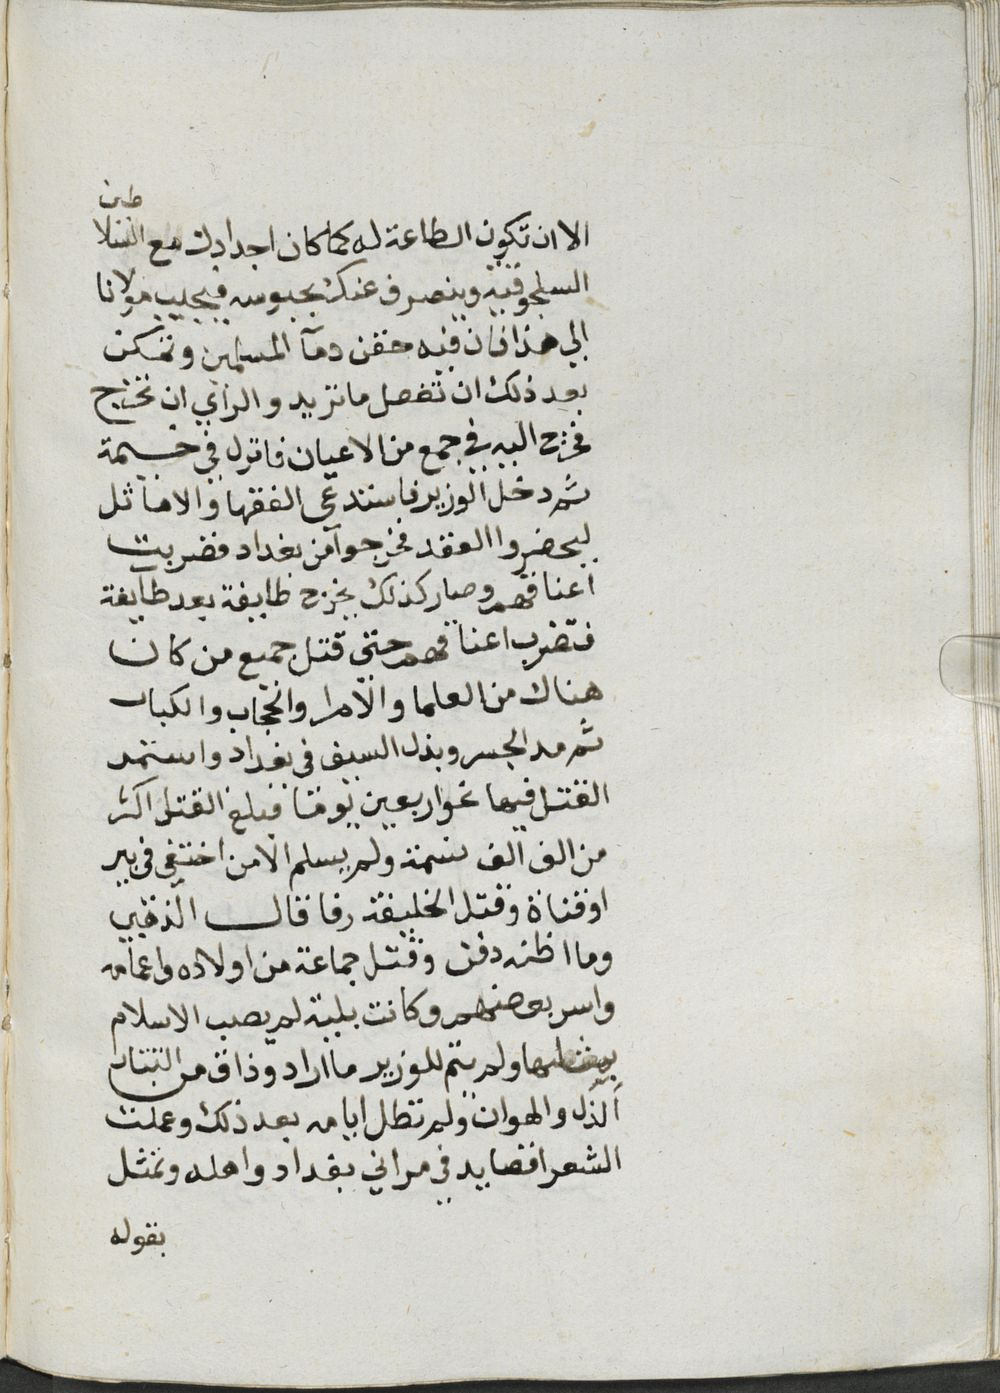 الا ان تكون الطاعة له كما كان اجدادك مع السلا
طين
السلجوقية وينصرف عنك بجيوشه فيجيب مولانا
الي هذا فان فيه حقن دمآ المسلمين وتمكن
بعد ذلك ان تفعل ما تريد والراي ان تخرج
فخرج اليه في جمع من الاعيان فانزل في خيمة
ثم دخل الوزير فاستدعى الفقها والاماثل
ليحضروا العقد فخرجوا من بغداد فضربت
اعناقهم وصار كذلك يخرج طايفة بعد طايفة
فتضرب اعناقهم حتى قتل جميع من كان
هناك من العلما والامرا والحجاب والكبار
ثم مد الجسر وبذل السيف في بغداد واستمر
القتل فيها نحو اربعين يوما فبلغ القتل اكثر
من الف الف نسمة ولم يسلم الا من اختفي في بير
او قناة وقتل الخليفة رفسا قال الذهبي
وما اظنه دفن وقتل جماعة من اولاده واعمامه
واسر بعضهم وكانت بلية لم يصب الاسلام
بمثلها ولم يتم للوزير ما اراد وذاق من التتار
الذل والهوان ولم تطل ايامه بعد ذلك وعملت
الشعرا قصايد في مراثي بغداد واهله وتمثل
بقوله